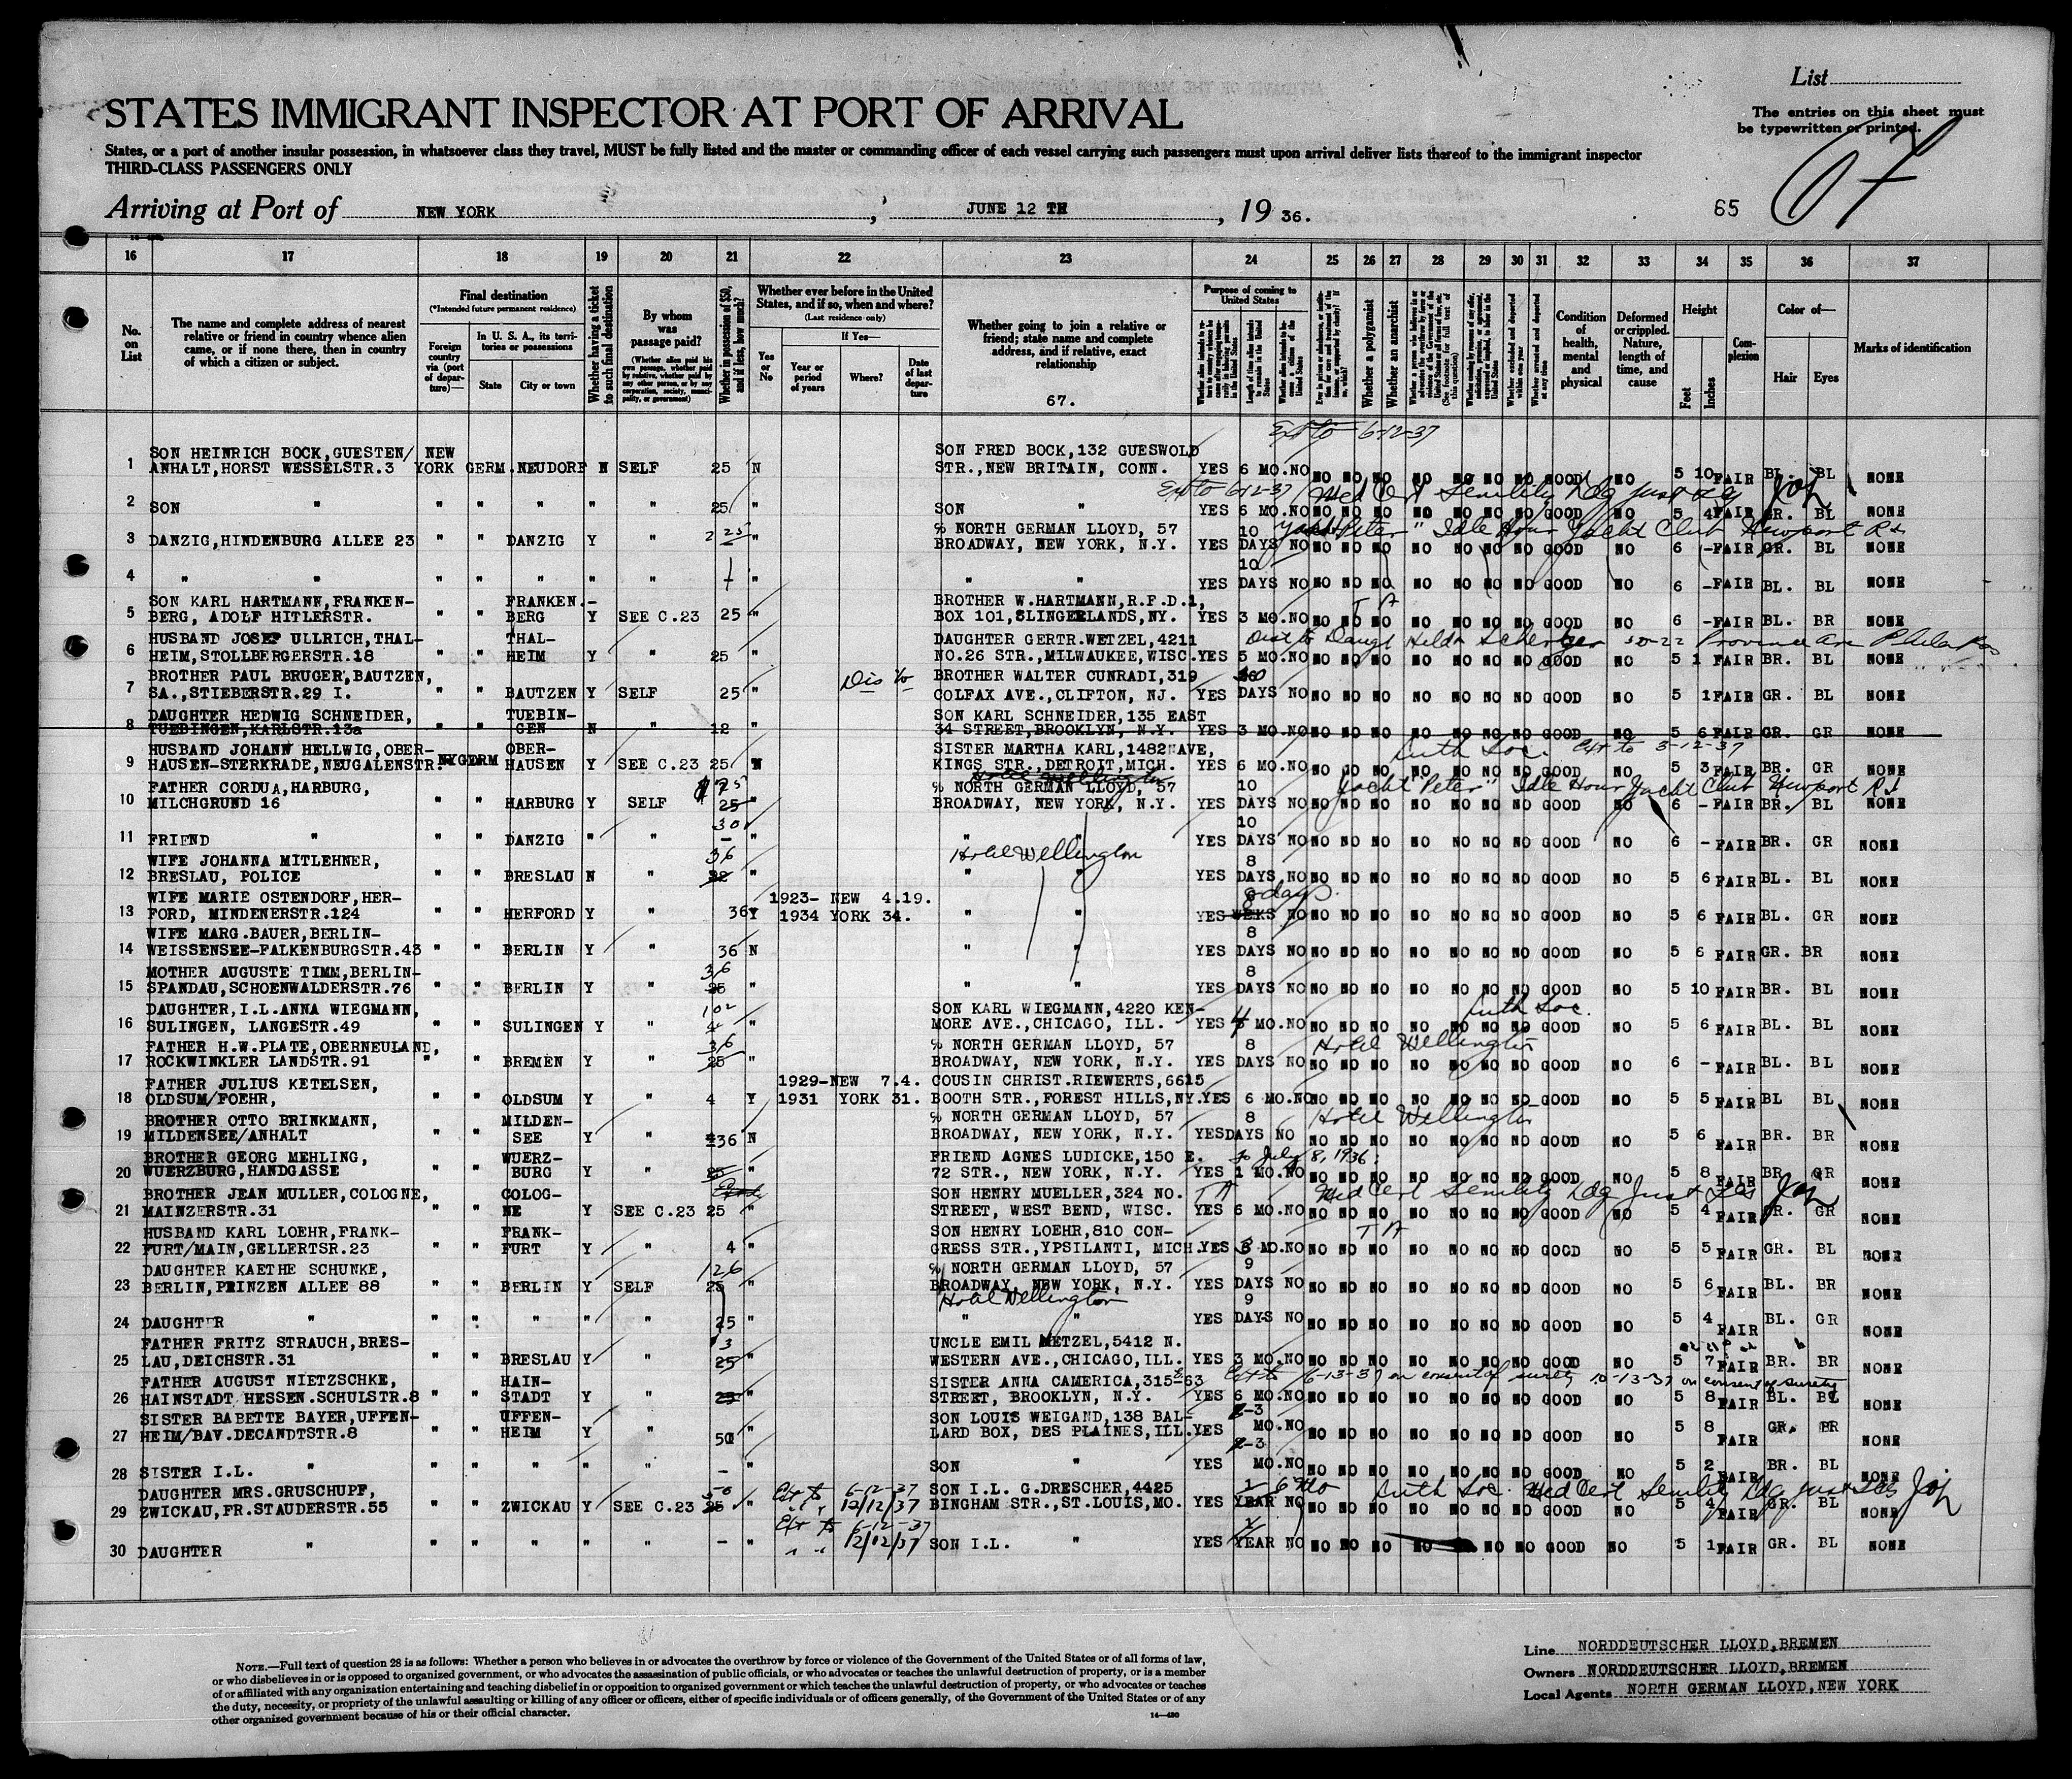 List
The entries on this sheet must
be typewritten or printed.
STATES IMMIGRANT INSPECTOR AT PORT OF ARRIVAL
States, or a port of another insular possession, in whatsoever class they travel, MUST be fully listed and the master or commanding officer of each vessel carrying such passengers must upon arrival deliver lists thereof to the immigrant inspector
THIRD-CLASS PASSENGERS ONLY
Arriving at Port of NEW YORK , JUNE 12 TH , 19 36. 65
16 17 18 19 20 21 22 23 24 25 26 27 28 29 30 31 32 33 34 35 36 37
No. on List
The name and complete address of nearest relative or friend in country whence alien came, or if none there, then in country of which a citizen or subject.
Final destination
(*Intended future permanent residence)
Foreign country via (port of departure)—
In U. S. A., its territories or possessions
State City or town
Whether having a ticket to such final destination
By whom was passage paid?
(Whether alien paid his own passage, whether paid by relative, whether paid by any other person, or by any corporation, society, municipality, or government)
Whether in possession of $50, and if less, how much?
Whether ever before in the United States, and if so, when and where?
(Last residence only)
Yes or No
If Yes—
Year or period of years
Where?
Date of last departure
Whether going to join a relative or friend; state name and complete address, and if relative, exact relationship
67.
Purpose of coming to United States
Whether a polygamist
Whether an anarchist
Condition of health, mental and physical
Deformed or crippled. Nature, length of time, and cause
Height
Feet Inches
Complexion
Color of—
Hair Eyes
Marks of identification
Ext to 6-12-37
SON HEINRICH BOCK,GUESTEN/ NEW SON FRED BOCK,132 GUESWOLD
1 ANHALT,HORST WESSELSTR.3 YORK GERM.NEUDORF N SELF 25 N STR.,NEW BRITAIN, CONN. YES 6 MO.NO NO NO NO NO NO NO NO GOOD NO 5 10 FAIR BL. BL NONE
Ext to 6-12-37 Med Cert Senility Ldg just
2 SON " " " " " " 25 " SON " YES 6 MO.NO NO NO NO NO NO NO NO GOOD NO 5 4 FAIR GR. BL NONE
℅ NORTH GERMAN LLOYD, 57 10 Yacht "Peter" Idle Hour Yacht Club Newport R I
3 DANZIG,HINDENBURG ALLEE 23 " " DANZIG Y " " BROADWAY, NEW YORK, N.Y. YES DAYS NO NO NO NO NO NO NO NO GOOD NO 6 - FAIR GR. BL NONE
10
4 " " " " " " " " " " YES DAYS NO NO NO NO NO NO NO NO GOOD NO 6 - FAIR BL. BL NONE
SON KARL HARTMANN,FRANKEN- FRANKEN.- BROTHER W.HARTMANN,R.F.D.1,
5 BERG, ADOLF HITLERSTR. " " BERG Y SEE C.23 25 " BOX 101,SLINGERLANDS,NY. YES 3 MO.NO NO NO NO NO NO NO NO GOOD NO 6 - FAIR BL. BR NONE
HUSBAND JOSEF ULLRICH,THAL- THAL- DAUGHTER GERTR.WETZEL,4211
6 HEIM,STOLLBERGERSTR.18 " " HEIM Y " 25 " NO.26 STR.,MILWAUKEE,WISC.YES 5 MO.NO NO NO NO NO NO NO NO GOOD NO 5 1 FAIR BR. BL NONE
BROTHER PAUL BRUGER,BAUTZEN, Dis to BROTHER WALTER CUNRADI,319
7 SA.,STIEBERSTR.29 I. " " BAUTZEN Y SELF 25 " COLFAX AVE.,CLIFTON, NJ. YES DAYS NO NO NO NO NO NO NO NO GOOD NO 5 1 FAIR GR. BL NONE
DAUGHTER HEDWIG SCHNEIDER, TUEBIN- SON KARL SCHNEIDER,135 EAST
8 TUEBINGEN,KARLSTR.13a " " GEN N " 12 34 STREET,BROOKLYN, N.Y. YES 3 MO.NO NO NO NO NO NO NO NO GOOD NO 5 6 FAIR GR. GR NONE
HUSBAND JOHANN HELLWIG,OBER- OBER- SISTER MARTHA KARL,1482 AVE, Luth Soc. Ext to 3-12-37
9 HAUSEN-STERKRADE,NEUGALENSTR. NY GERM HAUSEN Y SEE C.23 25 N KINGS STR.,DETROIT,MICH. YES 6 MO.NO NO NO NO NO NO NO NO GOOD NO 5 3 FAIR BR. GR NONE
FATHER CORDUA,HARBURG, ℅ NORTH GERMAN LLOYD, 57 10 Yacht "Peter" Idle Hour Yacht Club Newport R I
10 MILCHGRUND 16 " " HARBURG Y SELF 25 " BROADWAY, NEW YORK, N.Y. YES DAYS NO NO NO NO NO NO NO NO GOOD NO 6 - FAIR BR. BL NONE
30 10
11 FRIEND " " " DANZIG " " - " " " YES DAYS NO NO NO NO NO NO NO NO GOOD NO 6 - FAIR BR. GR NONE
WIFE JOHANNA MITLEHNER, 36 Hotel Wellington 8
12 BRESLAU, POLICE " " BRESLAU N " " " " YES DAYS NO NO NO NO NO NO NO NO GOOD NO 5 6 FAIR BL. BL NONE
WIFE MARIE OSTENDORF,HER- 1923- NEW 4.19. 8 days
13 FORD, MINDENERSTR.124 " " HERFORD Y " 36 Y 1934 YORK 34. " " YES WEEKS NO NO NO NO NO NO NO NO GOOD NO 5 6 FAIR BL. GR NONE
WIFE MARG.BAUER,BERLIN- 8
14 WEISSENSEE-FALKENBURGSTR.43 " " BERLIN Y " 36 N " " YES DAYS NO NO NO NO NO NO NO NO GOOD NO 5 6 FAIR GR. BR NONE
MOTHER AUGUSTE TIMM,BERLIN- 36 8
15 SPANDAU,SCHOENWALDERSTR.76 " " BERLIN Y " 25 " " " YES DAYS NO NO NO NO NO NO NO NO GOOD NO 5 10 FAIR BR. BL NONE
DAUGHTER,I.L.ANNA WIEGMANN, 102 SON KARL WIEGMANN,4220 KEN- Luth Soc.
16 SULINGEN, LANGESTR.49 " " SULINGEN Y " 4 " MORE AVE.,CHICAGO, ILL. YES 4 MO.NO NO NO NO NO NO NO NO GOOD NO 5 6 FAIR BL. BL NONE
FATHER H.W.PLATE,OBERNEULAND, 36 ℅ NORTH GERMAN LLOYD, 57 8 Hotel Wellington
17 ROCKWINKLER LANDSTR.91 " " BREMEN Y " 25 " BROADWAY, NEW YORK, N.Y. YES DAYS NO NO NO NO NO NO NO NO GOOD NO 6 - FAIR BL. BL NONE
FATHER JULIUS KETELSEN, 1929-NEW 7.4. COUSIN CHRIST.RIEWERTS,6615
18 OLDSUM/FOEHR, " " OLDSUM Y " 4 Y 1931 YORK 31. BOOTH STR.,FOREST HILLS,NY.YES 6 MO.NO NO NO NO NO NO NO NO GOOD NO 5 5 FAIR BL BL NONE
BROTHER OTTO BRINKMANN, MILDEN- ℅ NORTH GERMAN LLOYD, 57 8 Hotel Wellington
19 MILDENSEE/ANHALT " " SEE Y " 36 N BROADWAY, NEW YORK, N.Y. YES DAYS NO NO NO NO NO NO NO NO GOOD NO 5 6 FAIR BR. BR NONE
BROTHER GEORG MEHLING, WUERZ- FRIEND AGNES LUDICKE,150 E. to July 8, 1936.
20 WUERZBURG,HANDGASSE " " BURG Y " 25 " 72 STR., NEW YORK, N.Y. YES 1 MO.NO NO NO NO NO NO NO NO GOOD NO 5 8 FAIR BR. GR NONE
BROTHER JEAN MULLER,COLOGNE, COLOG- SON HENRY MUELLER,324 NO. T A Med Cert Senility Ldg Just
21 MAINZERSTR.31 " " NE Y SEE C.23 25 " STREET, WEST BEND, WISC. YES 6 MO.NO NO NO NO NO NO NO NO GOOD NO 5 4 FAIR GR. GR NONE
HUSBAND KARL LOEHR,FRANK- FRANK- SON HENRY LOEHR,810 CON- T A
22 FURT/MAIN,GELLERTSR.23 " " FURT Y " 4 " GRESS STR.,YPSILANTI, MICH.YES MO.NO NO NO NO NO NO NO NO GOOD NO 5 5 FAIR GR. BL NONE
DAUGHTER KAETHE SCHUNKE, 126 ℅ NORTH GERMAN LLOYD, 57 9
23 BERLIN,PRINZEN ALLEE 88 " " BERLIN Y SELF 25 " BROADWAY, NEW YORK, N.Y. YES DAYS NO NO NO NO NO NO NO NO GOOD NO 5 6 FAIR BL. BR NONE
Hotel Wellington 9
24 DAUGHTER " " " " " " 25 " " " YES DAYS NO NO NO NO NO NO NO NO GOOD NO 5 4 FAIR BL. GR NONE
FATHER FRITZ STRAUCH,BRES- UNCLE EMIL METZEL,5412 N.
25 LAU,DEICHSTR.31 " " BRESLAU Y " 25 " WESTERN AVE.,CHICAGO,ILL. YES 3 MO.NO NO NO NO NO NO NO NO GOOD NO 5 7 FAIR BR. BR NONE
FATHER AUGUST NIETZSCHKE, HAIN- SISTER ANNA CAMERICA,315-63 Ext to 6-13-37 on consent of surety 10-13-37 on consent of surety
26 HAINSTADT HESSEN.SCHULSTR.8 " " STADT Y " 25 " STREET, BROOKLYN, N.Y. YES 6 MO.NO NO NO NO NO NO NO NO GOOD NO 5 8 FAIR BL. BL NONE
SISTER BABETTE BAYER,UFFEN- UFFEN- SON LOUIS WEIGAND,138 BAL- 2-3
27 HEIM/BAV.DECANDTSTR.8 " " HEIM Y " 50 " LARD BOX, DES PLAINES,ILL.YES MO.NO NO NO NO NO NO NO NO GOOD NO 5 8 FAIR GR. BR NONE
2-3
28 SISTER I.L. " " " " " " - " SON " YES MO.NO NO NO NO NO NO NO NO GOOD NO 5 2 FAIR BR. BL NONE
DAUGHTER MRS.GRUSCHUPF, 50 Ext to 6-12-37 SON I.L. G.DRESCHER,4425 1 6 Mo Luth Soc. Med Cert Senility Ldg just
29 ZWICKAU,FR.STAUDERSTR.55 " " ZWICKAU Y SEE C.23 25 " " " 12/12/37 BINGHAM STR.,ST.LOUIS,MO. YES YEAR NO NO NO NO NO NO NO NO GOOD NO 5 4 FAIR GR. BL NONE
Ext to 6-12-37 1
30 DAUGHTER " " " " " " - " " " 12/12/37 SON I.L. " YES YEAR NO NO NO NO NO NO NO NO GOOD NO 5 1 FAIR GR. BL NONE
NOTE.—Full text of question 28 is as follows: Whether a person who believes in or advocates the overthrow by force or violence of the Government of the United States or of all forms of law,
or who disbelieves in or is opposed to organized government, or who advocates the assassination of public officials, or who advocates or teaches the unlawful destruction of property, or is a member
of or affiliated with any organization entertaining and teaching disbelief in or opposition to organized government or which teaches the unlawful destruction of property, or who advocates or teaches
the duty, necessity, or propriety of the unlawful assaulting or killing of any officer or officers, either of specific individuals or of officers generally, of the Government of the United States or of any
other organized government because of his or their official character.
14—430
Line NORDDEUTSCHER LLOYD,BREMEN
Owners NORDDEUTSCHER LLOYD,BREMEN
Local Agents NORTH GERMAN LLOYD,NEW YORK